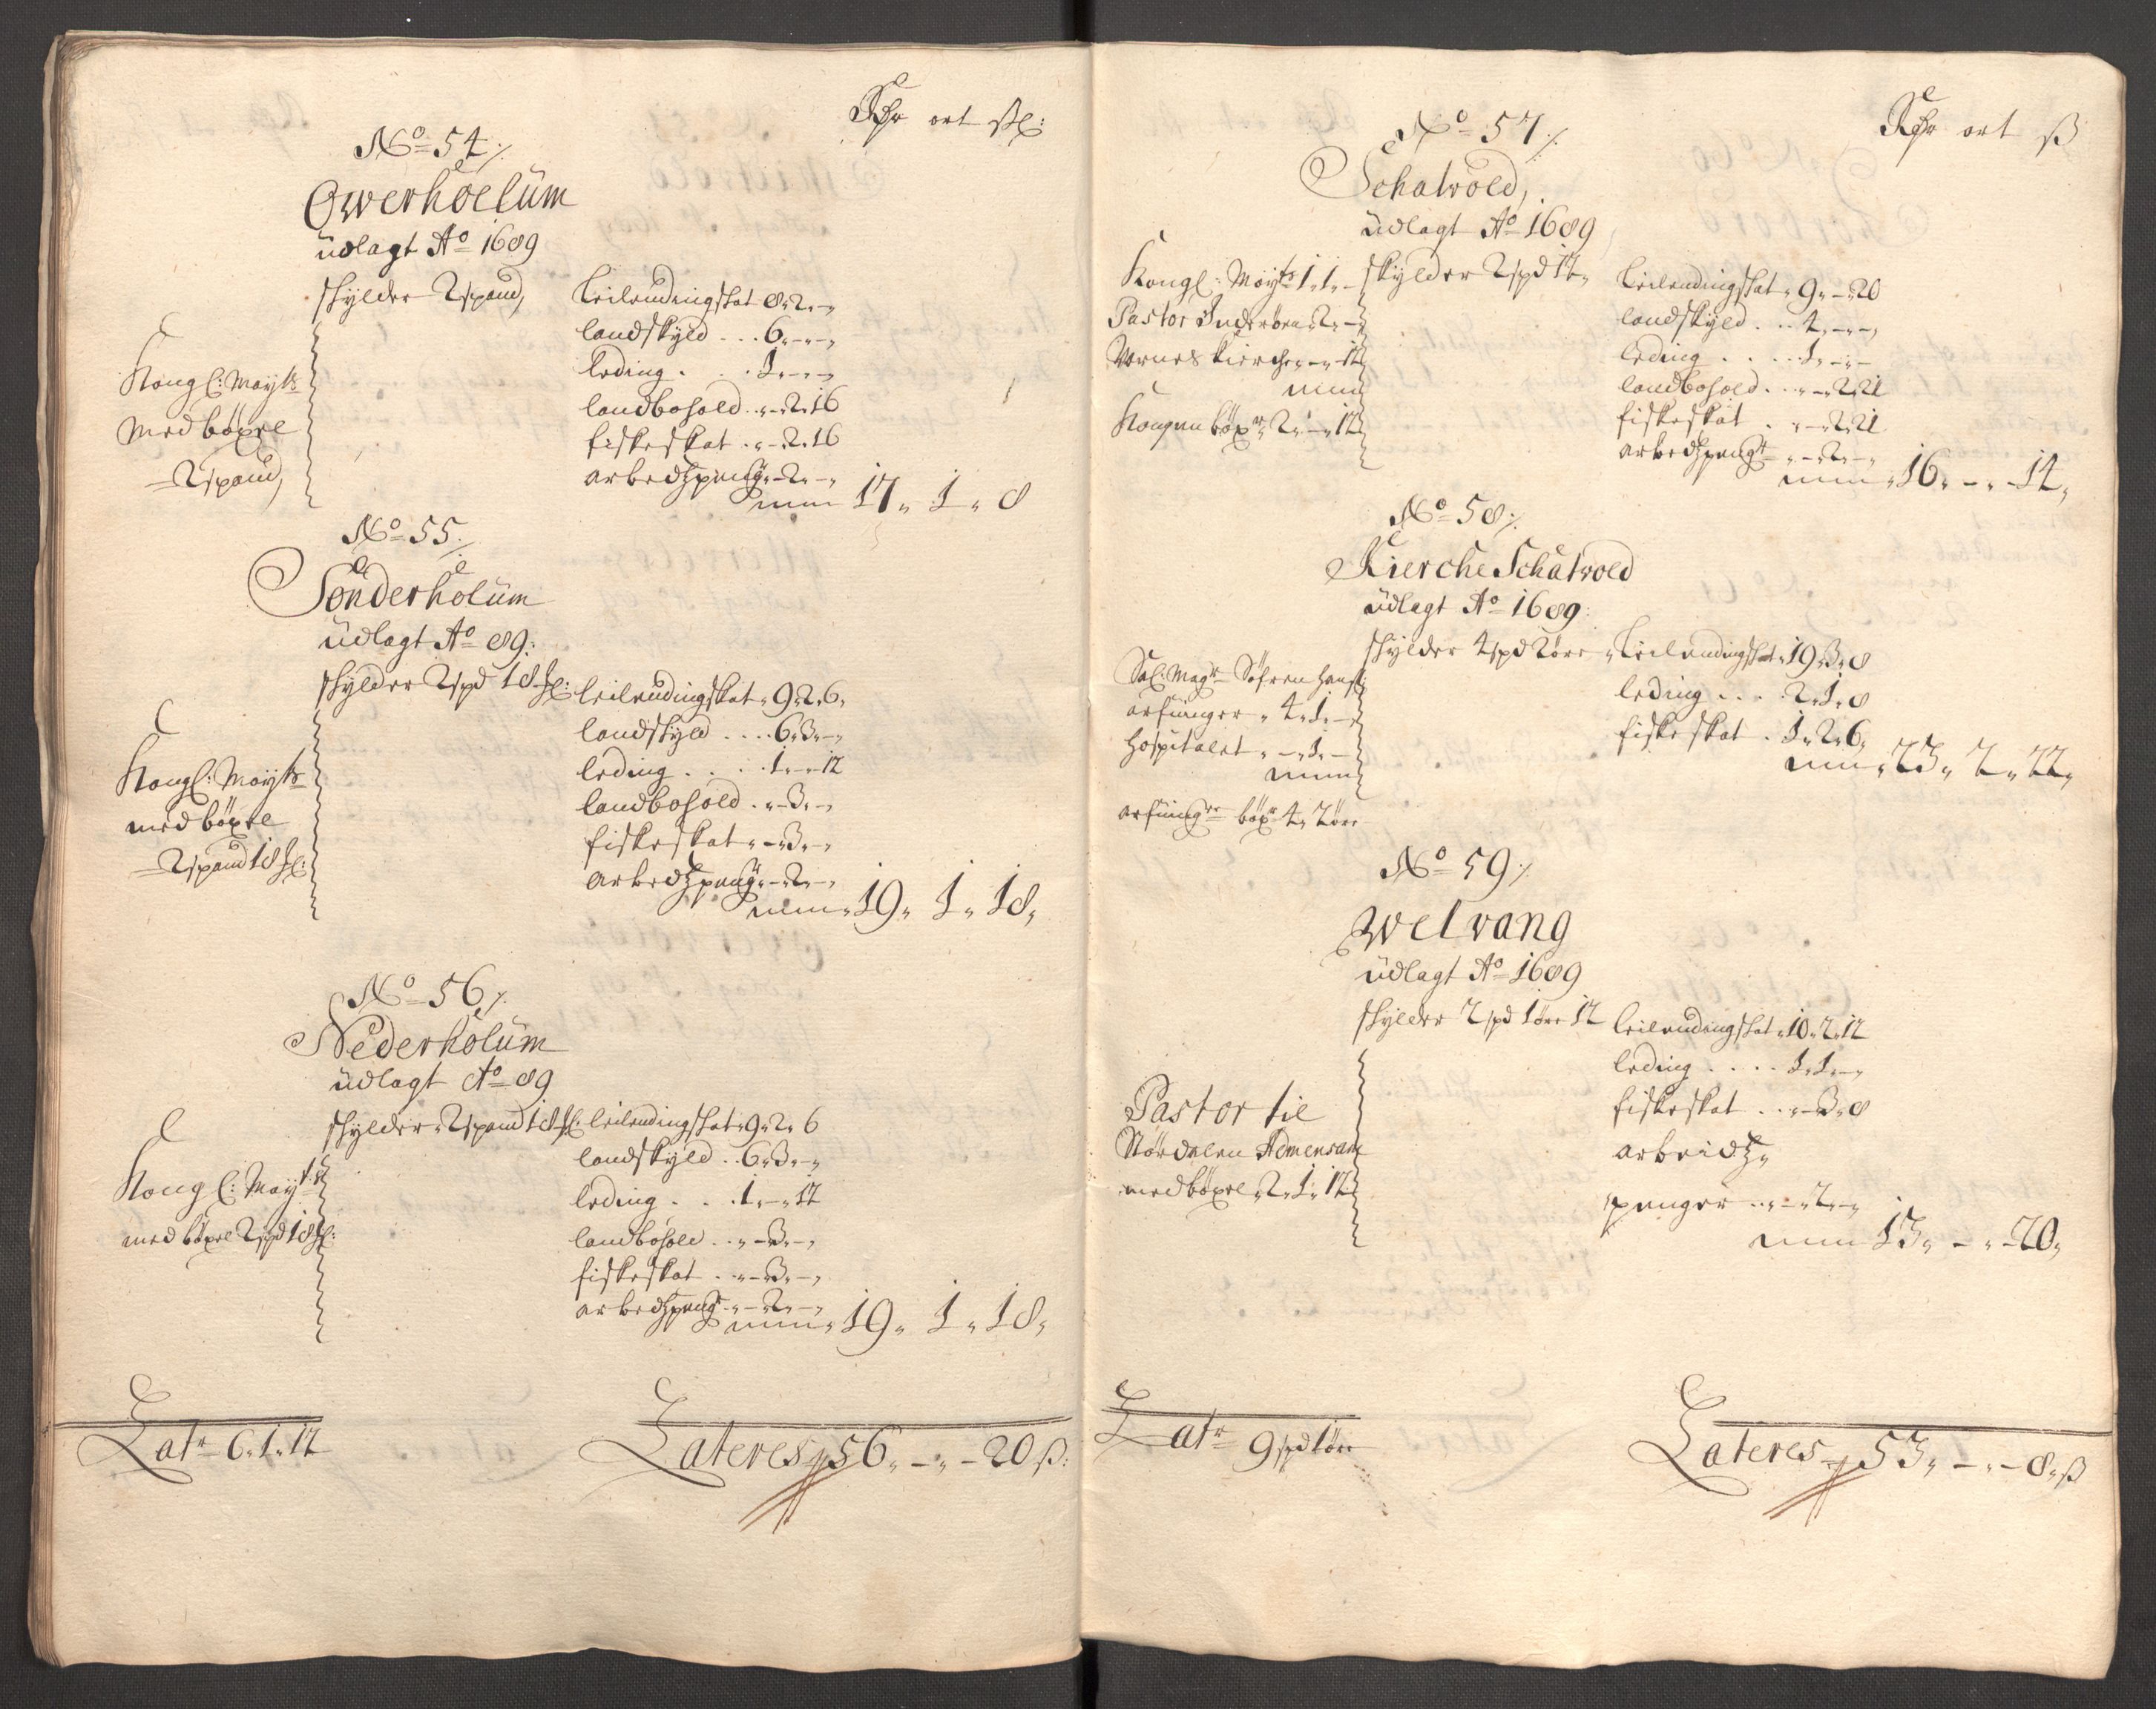 Rdr ort sl:
No 54 ⁒
Owerhoelüm
üdlagt Ao 1689
skylder 2 spand,
Kongl: Mayts
med böxel
2 spand,
leilendingskat 8 " 2 " - "
landskyld . . . 6 " - " - "
leding . . . 1 " - " - "
landbohold . " - 2 " 16
fiskeskat . " - 2 " 16
arbedtzpeng " - 2 " - "
num 17 " 1 " 8
No 55 ⁒
Sönderholüm
üdlagt Ao 89:
skylder 2 spd 18 sl:
Kongl: Mayts
med böxel
2 spand 18 sl:
leilendingskat " 9 " 2 " 6 "
landskyld . . . . 6 " 3 " - "
leding . . . . 1 " - " 12
landbohold . " - 3 " - "
fiskeskat " - 3 " - "
arbedtzpeng " - 2 " - "
num " 19 " 1 " 18 "
No 56 ⁒
Nederholüm
üdlagt Ao 89
skylder " 2 spand 18 sl:
Kongl: Mayts
med böxel 2 spd 18 sl:
leilendingskat " 9 " 2 " 6
landskyld . . 6 " 3 " - "
leding . . . 1 " - " 12
landbohold . . " - 3 " - "
fiskeskat . " - 3 " - "
arbedtzpeng " - 2 " - "
num " 19 " 1 " 18 "
Latr 6 " 1 " 12
Lateres 56 " - " - 20 ß:
Rdr ort ß
No 57 ⁒
Schatvold,
üdlagt Ao 1689
skylder 2 spd 12 "
Kongl: Mayts 1 " 1 " -
Pastor Inderöen " 2 " -
Wernes kierche " - " 12
num
Kongen böxr " 2 " - " 12
leilendingskat " 9 " - " 20
landskyld . . 4 " - " - "
leding . . . . 1 " - " -
landbohold . " - 2 " 21
fiskeskat . " - 2 " 21
arbedtzpengr " - 2 " - "
num " 16 " - " - 14 "
No 58 ⁒
Kierche Schatvold
üdlagt Ao 1689:
skylder 4 spd 2 öre
Sal: Magr Söfren Hans:
arfuinger " 4 " 1 " -
Hospitalet " - " 1 " -
num
arfuingr böxr 4 " 2 öre
leilendingskat " 19 " 3 " 8
leding . . . 2 " 1 " 8
fiskeskat . 1 " 2 " 6 "
num " 23 " 2 " 22 "
No 59 ⁒
Welvang
üdlagt Ao 1689
skylder 2 spd 1 öre 12
Pastor til
Stördalen Ad mensam
med böxel " 2 " 1 " 12
leilendingskat " 10 " 2 " 12
leding . . . . 1 " 1 " - "
fiskeskat . . " - 3 " 8
arbeidtz "
penger . . " - " 2 " - "
num 13 " - " - 20 "
Latr 9 spd 1 öre
Lateres 53 " - " - 8 " ß